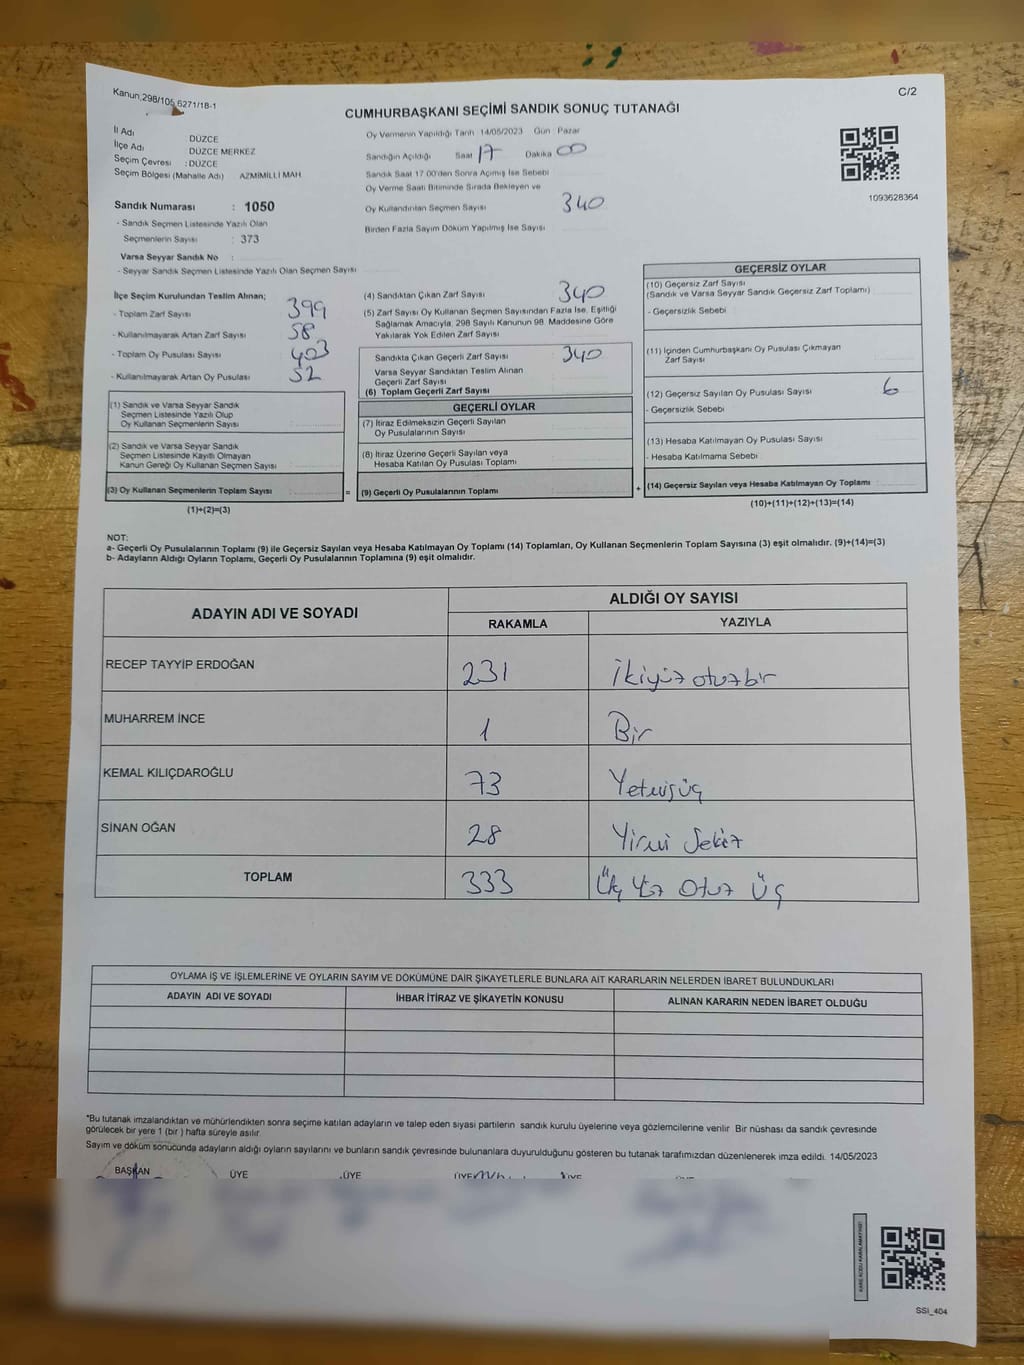 Kanun,298/105,6271/18-1
C/2
CUMHURBAŞKANI SEÇİMİ SANDIK SONUÇ TUTANAĞI
İl Adı DÜZCE
İlçe Adı DÜZCE MERKEZ
Seçim Çevresi : DÜZCE
Seçim Bölgesi (Mahalle Adı) AZMİMİLLİ MAH.
Sandık Numarası : 1050
- Sandık Seçmen Listesinde Yazılı Olan
Seçmenlerin Sayısı : 373
Varsa Seyyar Sandık No :
- Seyyar Sandık Seçmen Listesinde Yazılı Olan Seçmen Sayısı
Oy Vermenin Yapıldığı Tarih 14/05/2023 Gün Pazar
Sandığın Açıldığı Saat 17 Dakika 00
Sandık Saat 17.00'den Sonra Açılmış İse Sebebi
Oy Verme Saati Bitiminde Sırada Bekleyen ve
Oy Kullandırılan Seçmen Sayısı 340
Birden Fazla Sayım Döküm Yapılmış İse Sayısı
1093628364
İlçe Seçim Kurulundan Teslim Alınan;
- Toplam Zarf Sayısı 399
- Kullanılmayarak Artan Zarf Sayısı 58
- Toplam Oy Pusulası Sayısı 403
- Kullanılmayarak Artan Oy Pusulası 52
(1) Sandık ve Varsa Seyyar Sandık
Seçmen Listesinde Yazılı Olup
Oy Kullanan Seçmenlerin Sayısı
(2) Sandık ve Varsa Seyyar Sandık
Seçmen Listesinde Kayıtlı Olmayan
Kanun Gereği Oy Kullanan Seçmen Sayısı
(3) Oy Kullanan Seçmenlerin Toplam Sayısı
(1)+(2)=(3)
(4) Sandıktan Çıkan Zarf Sayısı 340
(5) Zarf Sayısı Oy Kullanan Seçmen Sayısından Fazla İse, Eşitliği
Sağlamak Amacıyla, 298 Sayılı Kanunun 98. Maddesine Göre
Yakılarak Yok Edilen Zarf Sayısı
Sandıkta Çıkan Geçerli Zarf Sayısı 340
Varsa Seyyar Sandıktan Teslim Alınan
Geçerli Zarf Sayısı
(6) Toplam Geçerli Zarf Sayısı
GEÇERLİ OYLAR
(7) İtiraz Edilmeksizin Geçerli Sayılan
Oy Pusulalarının Sayısı
(8) İtiraz Üzerine Geçerli Sayılan veya
Hesaba Katılan Oy Pusulası Toplamı
= (9) Geçerli Oy Pusulalarının Toplamı
GEÇERSİZ OYLAR
(10) Geçersiz Zarf Sayısı
(Sandık ve Varsa Seyyar Sandık Geçersiz Zarf Toplamı)
- Geçersizlik Sebebi
(11) İçinden Cumhurbaşkanı Oy Pusulası Çıkmayan
Zarf Sayısı
(12) Geçersiz Sayılan Oy Pusulası Sayısı 6
- Geçersizlik Sebebi
(13) Hesaba Katılmayan Oy Pusulası Sayısı
- Hesaba Katılmama Sebebi
+ (14) Geçersiz Sayılan veya Hesaba Katılmayan Oy Toplamı
(10)+(11)+(12)+(13)=(14)
NOT:
a- Geçerli Oy Pusulalarının Toplamı (9) ile Geçersiz Sayılan veya Hesaba Katılmayan Oy Toplamı (14) Toplamları, Oy Kullanan Seçmenlerin Toplam Sayısına (3) eşit olmalıdır. (9)+(14)=(3)
b- Adayların Aldığı Oyların Toplamı, Geçerli Oy Pusulalarının Toplamına (9) eşit olmalıdır.
ADAYIN ADI VE SOYADI
ALDIĞI OY SAYISI
RAKAMLA YAZIYLA
RECEP TAYYİP ERDOĞAN 231 İkiyüz otuz bir
MUHARREM İNCE 1 Bir
KEMAL KILIÇDAROĞLU 73 Yetmişüç
SİNAN OĞAN 28 Yirmi Sekiz
TOPLAM 333 Üç Yüz Otuz Üç
OYLAMA İŞ VE İŞLEMLERİNE VE OYLARIN SAYIM VE DÖKÜMÜNE DAİR ŞİKAYETLERLE BUNLARA AİT KARARLARIN NELERDEN İBARET BULUNDUKLARI
ADAYIN ADI VE SOYADI İHBAR İTİRAZ VE ŞİKAYETİN KONUSU ALINAN KARARIN NEDEN İBARET OLDUĞU
*Bu tutanak imzalandıktan ve mühürlendikten sonra seçime katılan adayların ve talep eden siyasi partilerin sandık kurulu üyelerine veya gözlemcilerine verilir Bir nüshası da sandık çevresinde
görülecek bir yere 1 (bir) hafta süreyle asılır.
Sayım ve döküm sonucunda adayların aldığı oyların sayılarını ve bunların sandık çevresinde bulunanlara duyurulduğunu gösteren bu tutanak tarafımızdan düzenlenerek imza edildi. 14/05/2023
BAŞKAN ÜYE ÜYE ÜYE ÜYE
SSİ_404